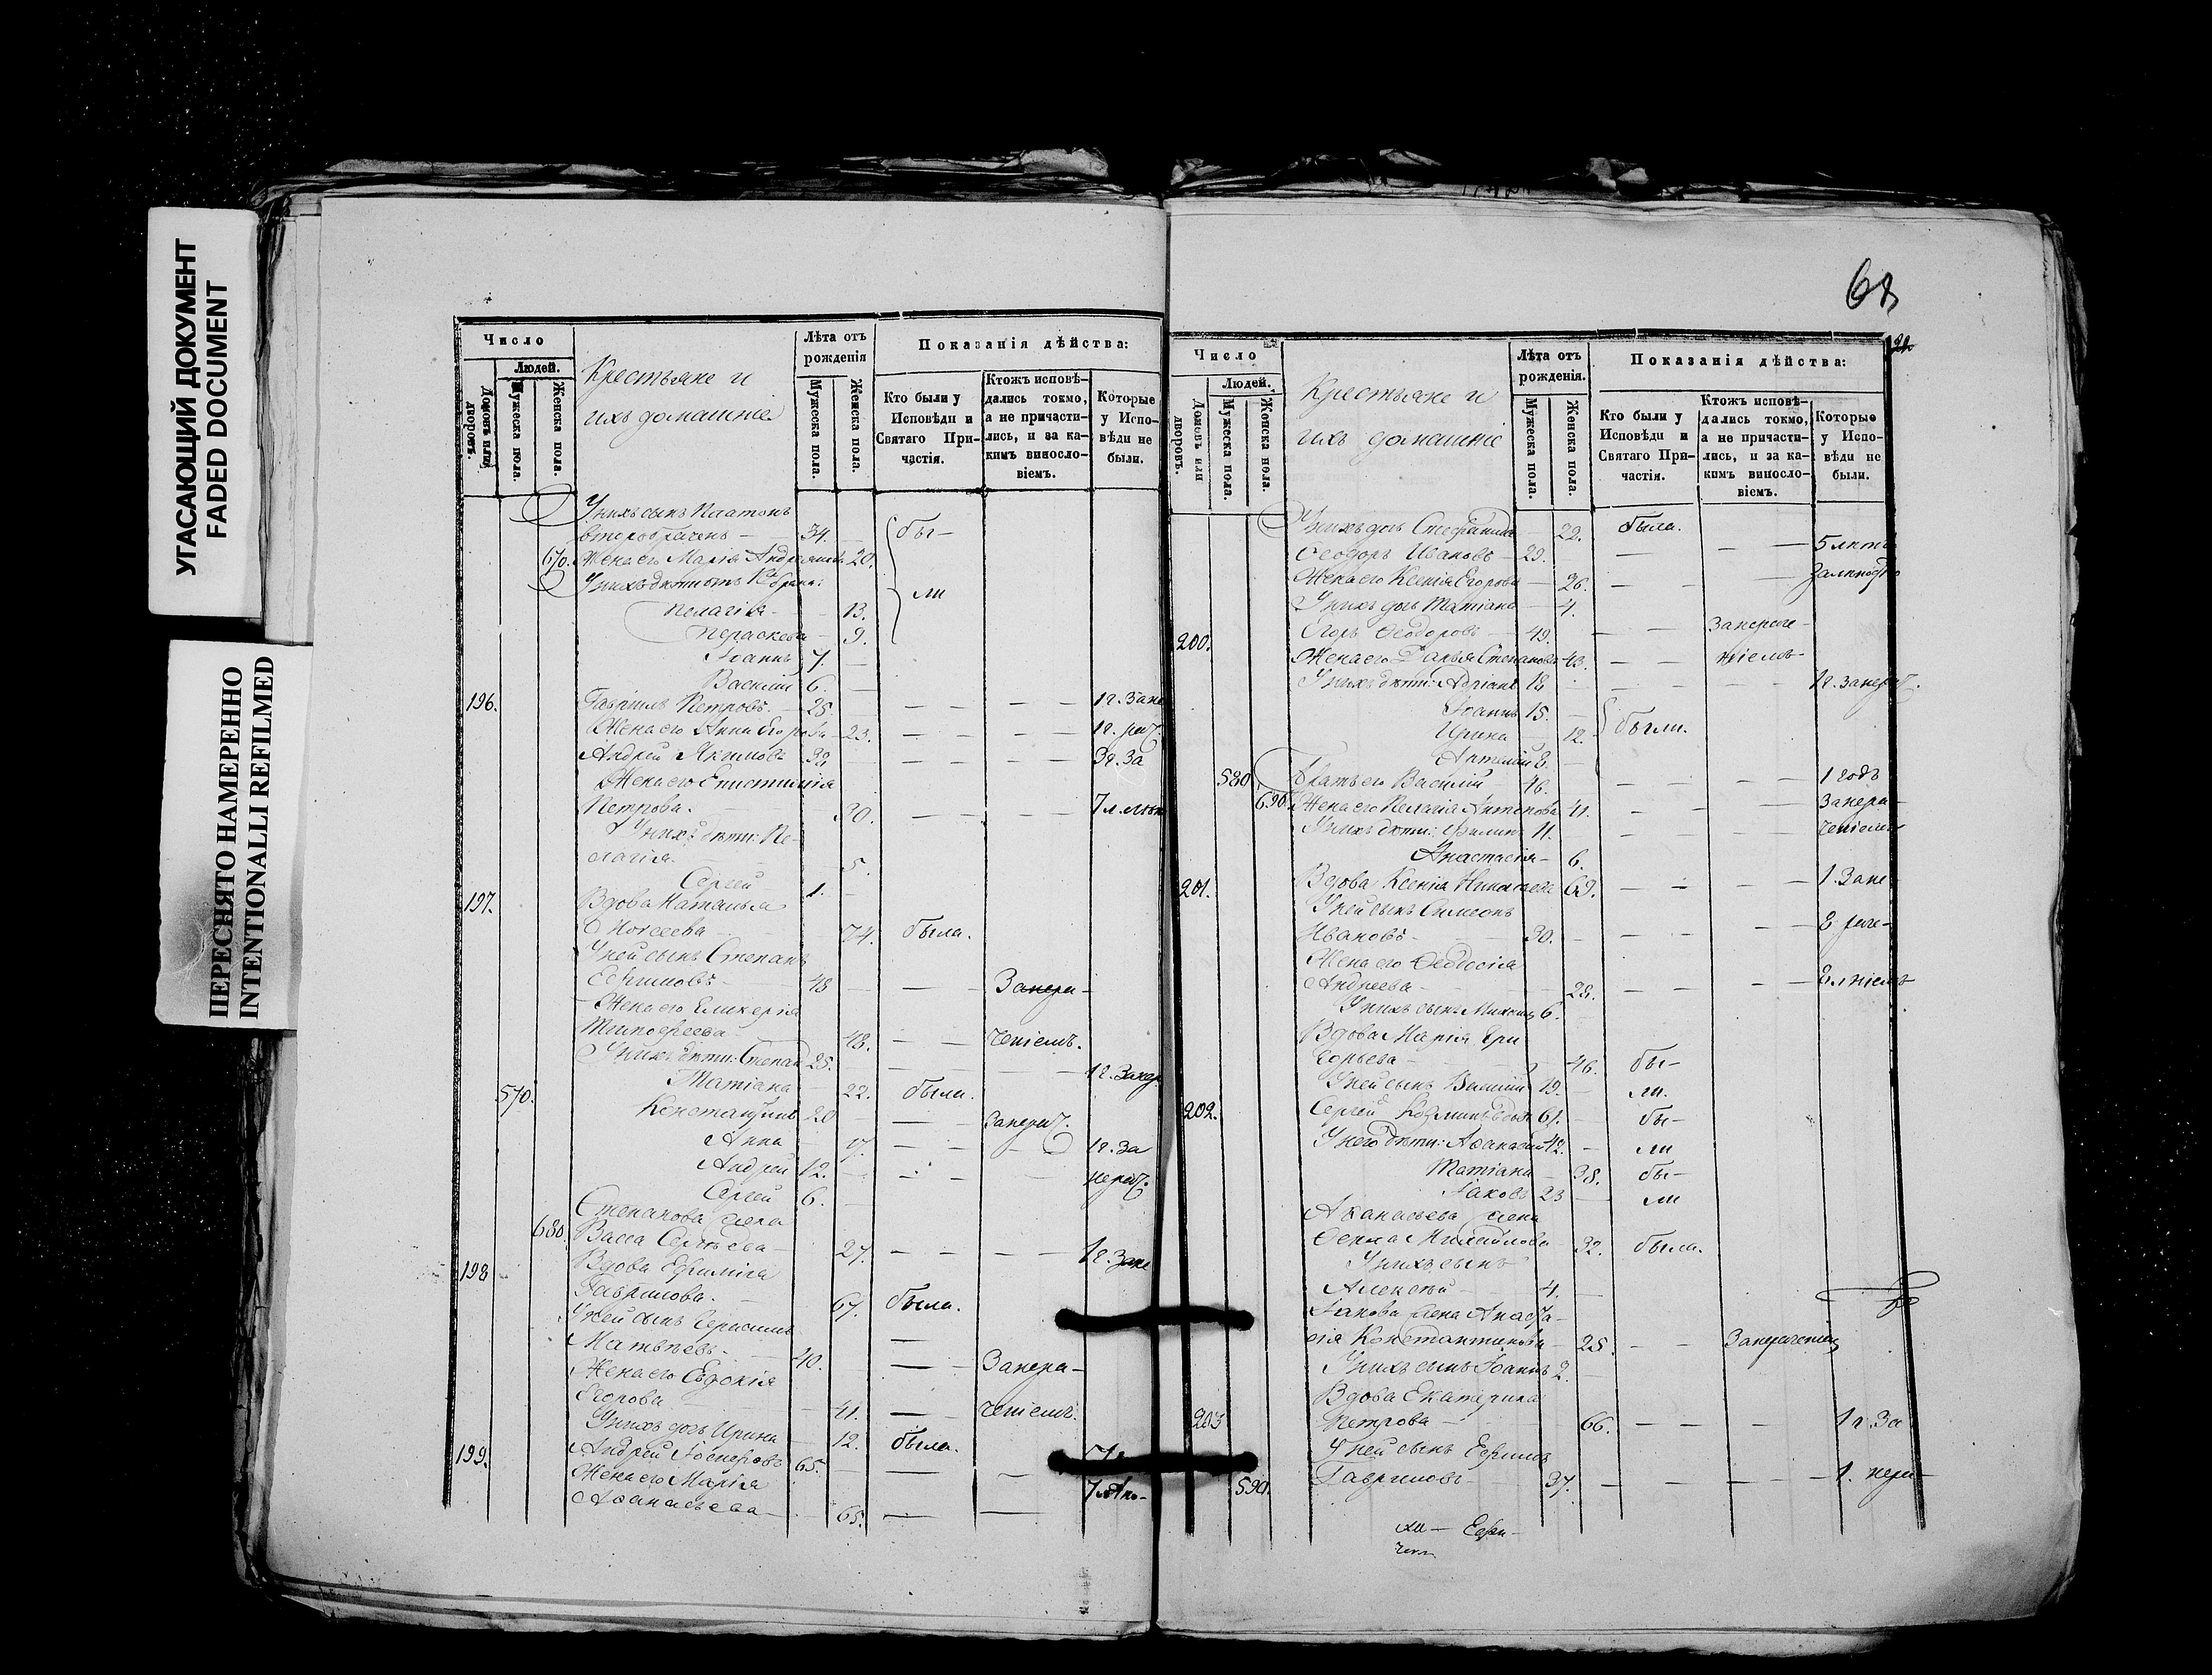 УГАСАЮЩИЙ ДОКУМЕНТ
FADED DOCUMENT
ПЕРЕСНЯТО НАМЕРЕННО
INTENTIONALLI REFILMED
Число
Людей.
Домовъ или дворовъ.
Мужеска пола.
Женска пола.
Крестьяне и
ихъ домашніе
Лѣта отъ рожденія
Мужеска пола.
Женска пола.
Показанія дѣйства:
Кто были у Исповѣди и Святаго Причастія.
Ктожъ исповѣдались токмо, а не причастились, и за какимъ винословіемъ.
Которые у Исповѣди не были.
У нихъ сынъ Платонъ
второбраченъ — 34. бы-
670. Жена его Марія Андреянова 20.
У нихъ дѣти отъ брака:
Пелагія — 13. ли
Параскева — 9.
Іоаннъ 7.
Василій 6.
196. Гавріилъ Петровъ 25. — — 1г. Зане
Жена его Анна Егорова 23. — —
Андрей Якимовъ 32 — — 3г. За
Жена его Епистимія
Петрова. 30. — —
У нихъ дѣти: Пе-
лагія. 5.
Сергей 1.
197. Вдова Наталья
Моисеева 74. была.
У ней сынъ Степанъ
Ефимовъ 48 — Занера-
Жена его Гликерія
Тимофеева 48. — — ченіемъ.
У нихъ дѣти: Степан 25. — —
570. Матіана 22. были.
Константинъ 20
Анна — — 1г. За
Андрей 12. — —
Сергей 6.
Степанова жена
680. Васса Сергѣева 27. — — 1г. Зане
198 Вдова Ефимія
Гаврилова. 67. была.
У ней сынъ Герасимъ
Матвѣевъ. 40. — — Занера-
Жена его Евдокія
Егорова 41. — ченіемъ.
У нихъ дочь Ирина 12. была.
199. Андрей Іосифовъ 65. —
Жена его Марія
Аѳанасьева 65. — —
68
Число
Людей.
Домовъ или дворовъ.
Мужеска пола.
Женска пола.
Крестьяне и
ихъ домашніе
Лѣта отъ рожденія.
Мужеска пола.
Женска пола.
Показанія дѣйства:
Кто были у Исповѣди и Святаго Причастія.
Ктожъ исповѣдались токмо, а не причастились, и за какимъ винословіемъ.
Которые у Исповѣди не были.
У нихъ дочь Стефанида 22. была.
Ѳеодоръ Ивановъ 29. — —
Жена его Ксенія Егорова 26. — —
У нихъ дочь Татіана 4.
200. Егоръ Ѳеодоровъ 49. — —
Жена его Дарья Степанова 43. — —
У нихъ дѣти: Адріанъ 18 — —
Іоаннъ 15.
Ирина 12. были.
580 Братъ его Василій 46. — — 1 годъ
690. Жена его Пелагія Антонова 41. — — Занера-
У нихъ дѣти: Филипъ 11. ченіемъ
Анастасія 6.
201. Вдова Ксенія 69. — — 1. Зане
У ней сынъ Симеонъ
Ивановъ 30. — —
Жена его Ѳеодосія
Андреева — —
У нихъ сынъ 6.
Вдова Марія Гри
горьева 46. бы-
У ней сынъ 19. ли.
202. Сергей 61. бы-
У него дѣти: Аѳанасій 42. ли
Татіана 38. бы-
Іаковъ 23 ли
Аѳанасьева жена
Ѳекла Михайлова 32. была.
У нихъ сынъ
Алексѣй 4.
Іакова жена Анаста-
сія Константинова 25. — —
У нихъ сынъ Іоаннъ 2.
Вдова Екатерина
203 Петрова — 66. — — 1 г. За
У ней сынъ Ефимъ
590. Гавриловъ 37. — —